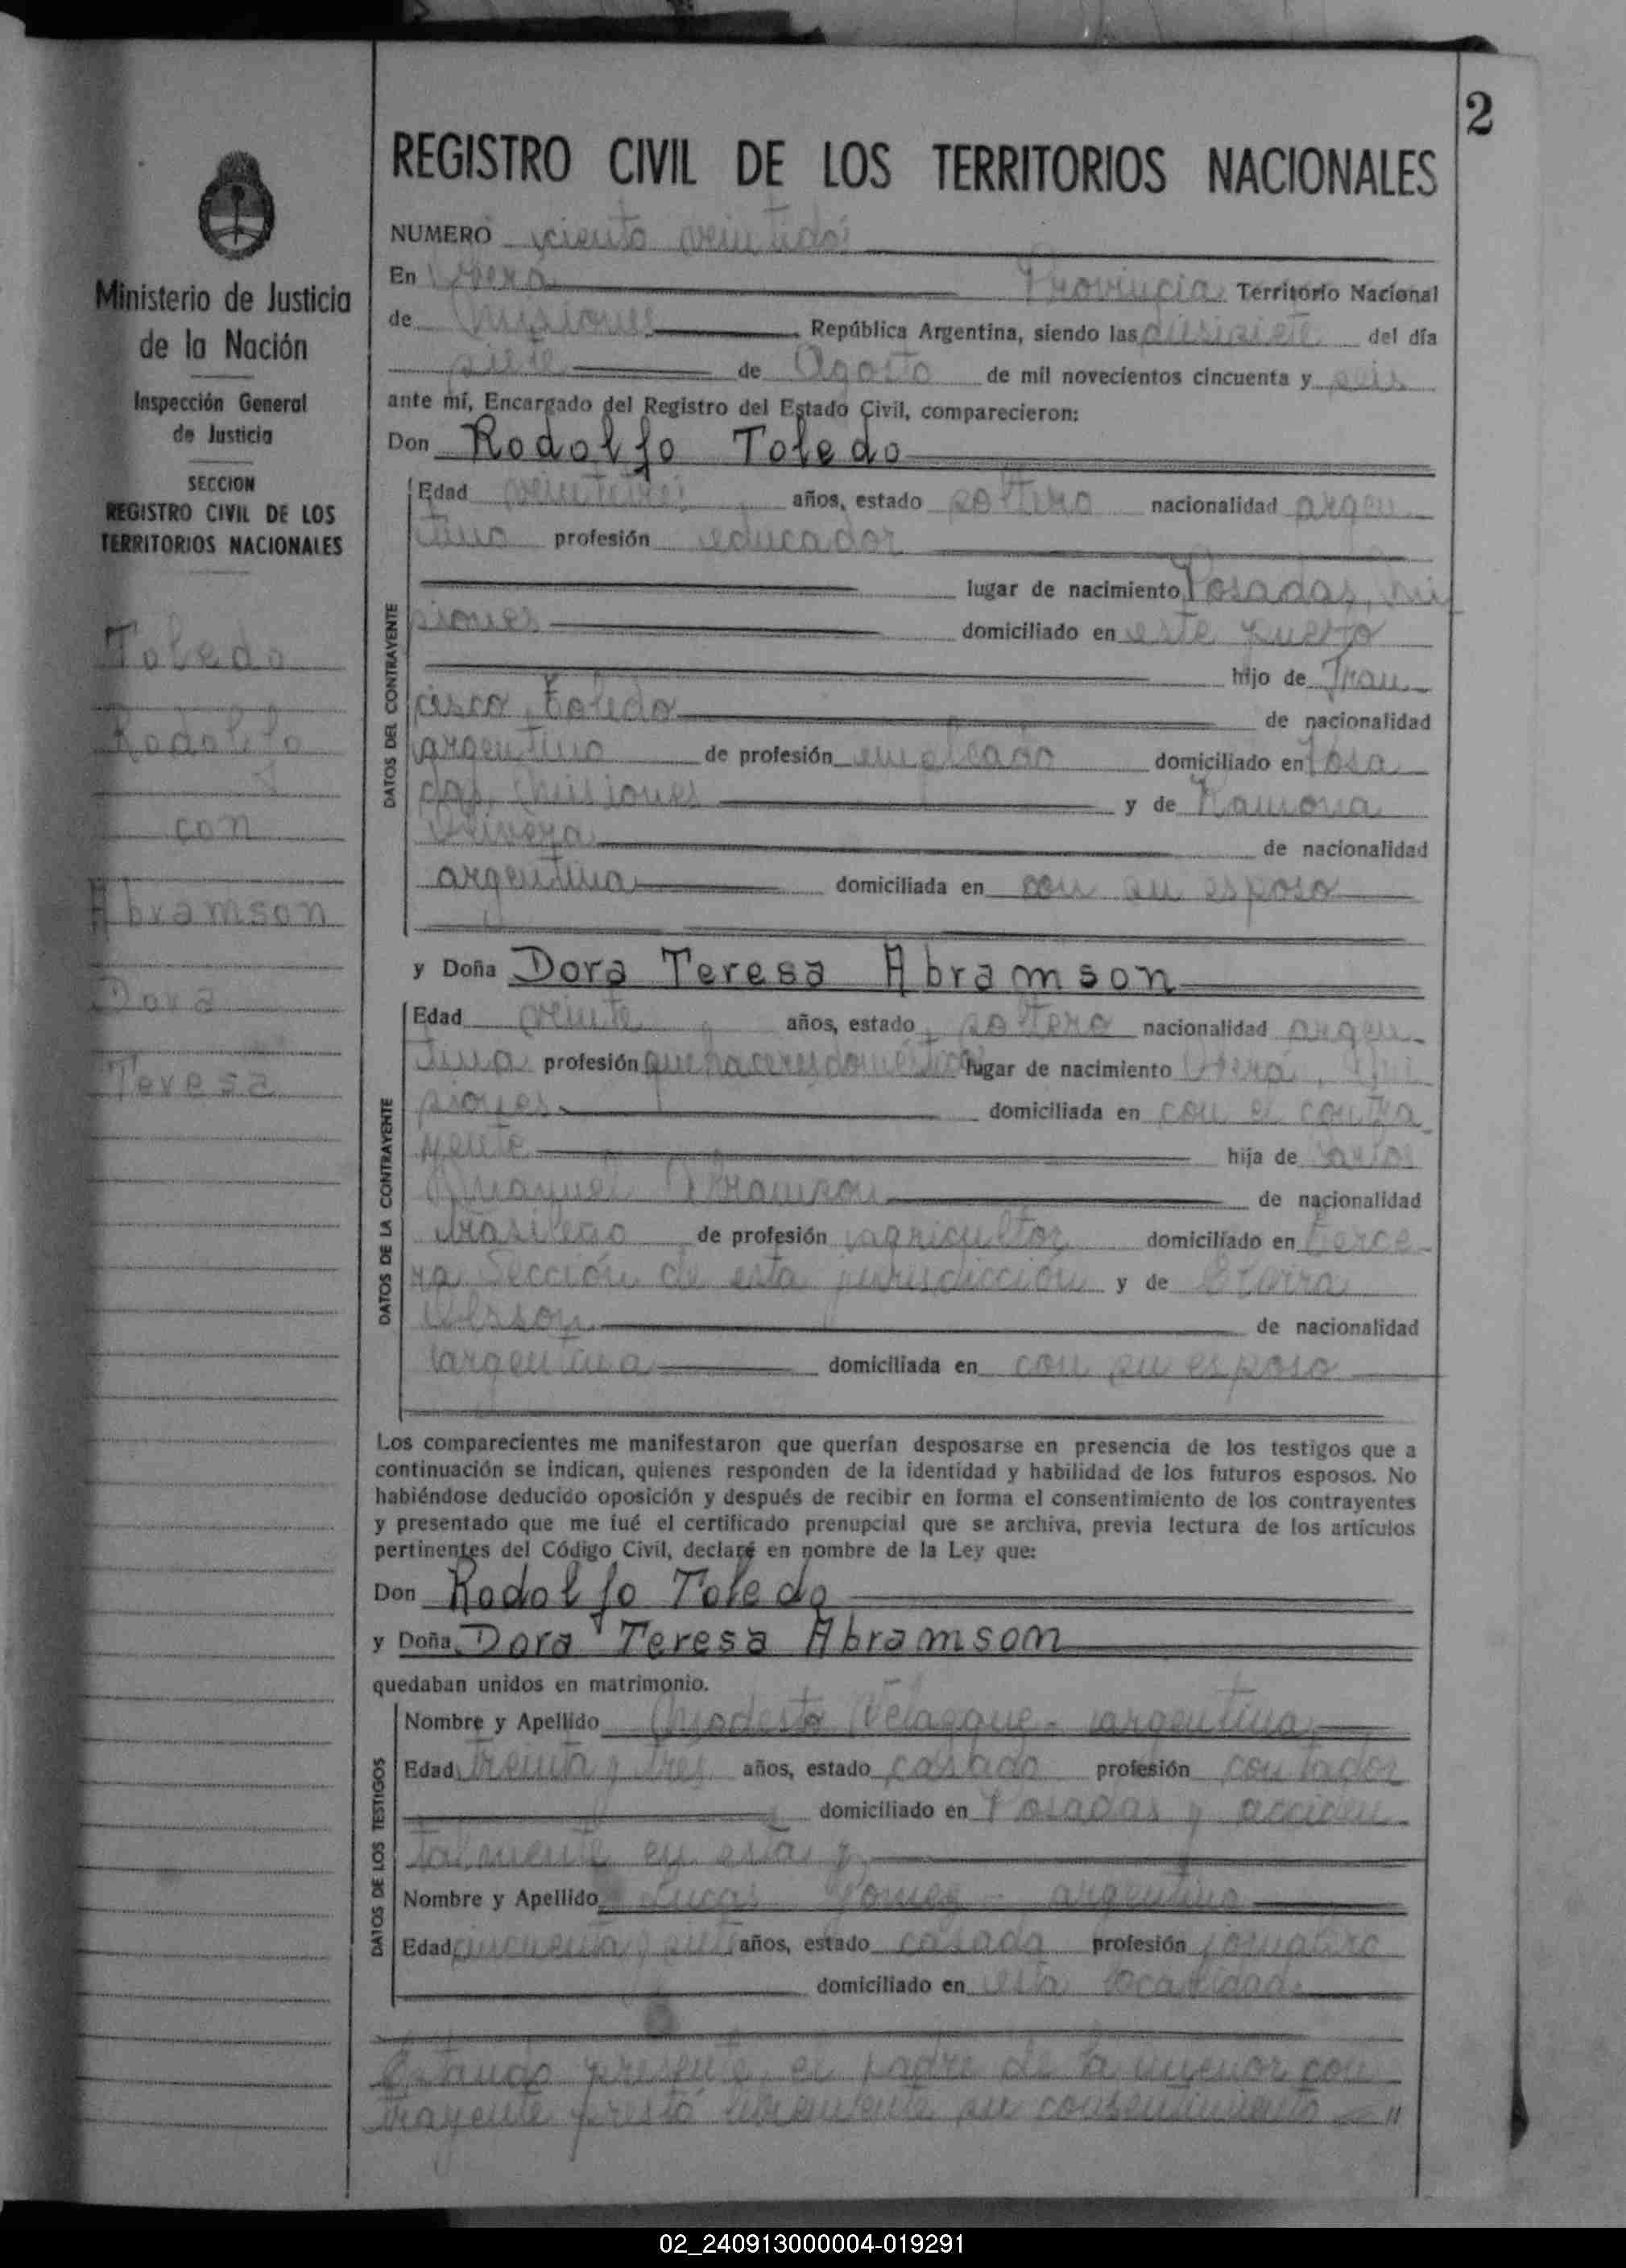 2
REGISTRO CIVIL DE LOS TERRITORIOS NACIONALES
Ministerio de Justicia
de la Nación
Inspección General
de Justicia
SECCION
REGISTRO CIVIL DE LOS
TERRITORIOS NACIONALES
Toledo
Rodolfo
con
Abramson
Dora
Teresa
NUMERO ciento veintidós
En Oberá Provincia Territorio Nacional
de Misiones República Argentina, siendo las diesisiete del día
siete de Agosto de mil novecientos cincuenta y seis
ante mí, Encargado del Registro del Estado Civil, comparecieron:
Don Rodolfo Toledo
DATOS DEL CONTRAYENTE
Edad veintitrés años, estado soltero nacionalidad argen
tino profesión educador
lugar de nacimiento Posadas, Mi
siones domiciliado en este
hijo de Fran
cisco Toledo de nacionalidad
argentino de profesión empleado domiciliado en Posa
das, Misiones y de Ramona
Olivera de nacionalidad
argentina domiciliada en con su esposo
y Doña Dora Teresa Abramson
DATOS DE LA CONTRAYENTE
Edad veinte años, estado soltera nacionalidad argen
tina profesión quehaceres domésticos lugar de nacimiento Oberá, Mi
siones domiciliada en con el contra
yente hija de Carlos
Manuel Abramson de nacionalidad
brasileño de profesión agricultor domiciliado en Terce
ra Sección de esta jurisdicción y de
de nacionalidad
argentina domiciliada en con su esposo
Los comparecientes me manifestaron que querían desposarse en presencia de los testigos que a
continuación se indican, quienes responden de la identidad y habilidad de los futuros esposos. No
habiéndose deducido oposición y después de recibir en forma el consentimiento de los contrayentes
y presentado que me fué el certificado prenupcial que se archiva, previa lectura de los artículos
pertinentes del Código Civil, declaré en nombre de la Ley que:
Don Rodolfo Toledo
y Doña Dora Teresa Abramson
quedaban unidos en matrimonio.
DATOS DE LOS TESTIGOS
Nombre y Apellido Modesto argentino
Edad treinta y tres años, estado casado profesión contador
domiciliado en Posadas y acciden
talmente en esta
Nombre y Apellido Lucas Gomez - argentino
Edad cincuenta y siete años, estado casado profesión jornalero
domiciliado en esta localidad.
Estando presente el padre de la menor con
trayente prestó libremente su consentimiento
02_240913000004-019291